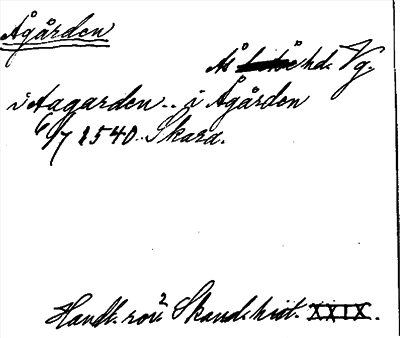 Ågården
Ås hd. Vg.
i Aagarden .. i Ågården
6/7 1540 Skara.
Handl. rör Skand. hist. XXIX.